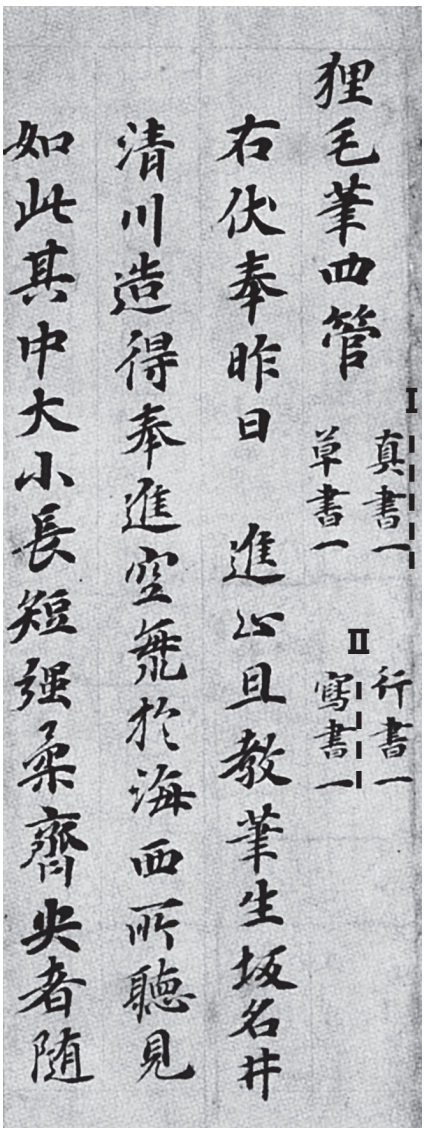 狸毛筆四管
I
真書一 行書一
II
草書一 寫書一
右伏奉昨日 進止且教筆生坂名井
清川造得奉進空海於海西所聽見
如此其中大小長短强柔齊尖者随